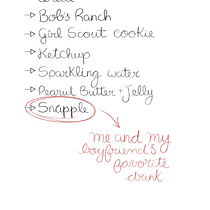 → Bob's Ranch
→ Girl Scout cookie
→ Ketchup
→ Sparkling water
→ Peanut Butter + Jelly
→ Snapple
me and my
boyfriend's
favorite
drink